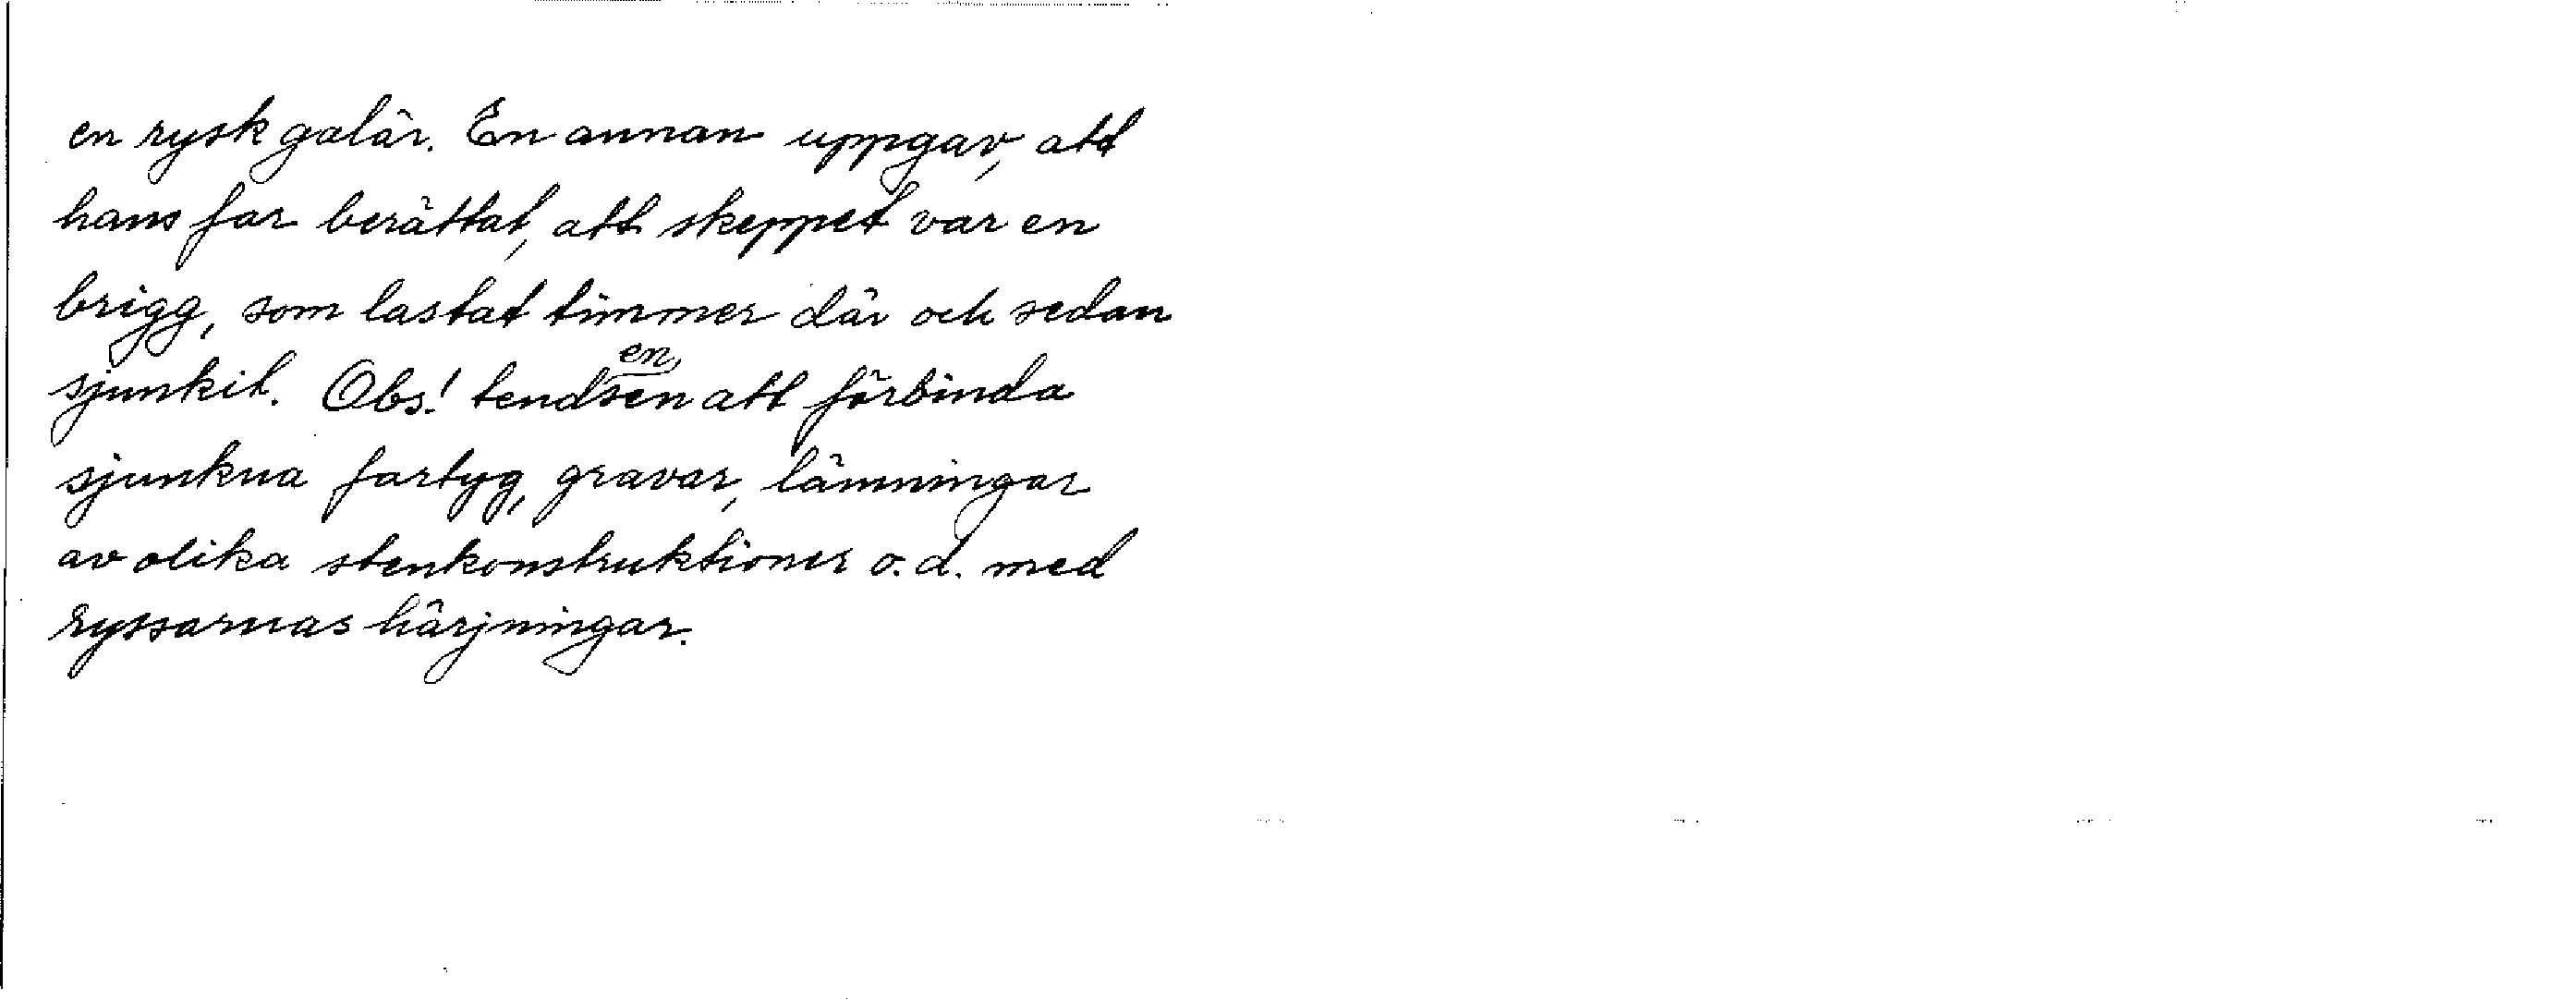 en rysk galär. En annan uppgav, att
hans far berättat, att skeppet var en
brigg, som lastat timmer där och sedan
sjunkit. Obs! tendensen att förbinda
sjunkna fartyg, gravar, lämningar
av olika stenkonstruktioner o. d. med
ryssarnas härjningar.